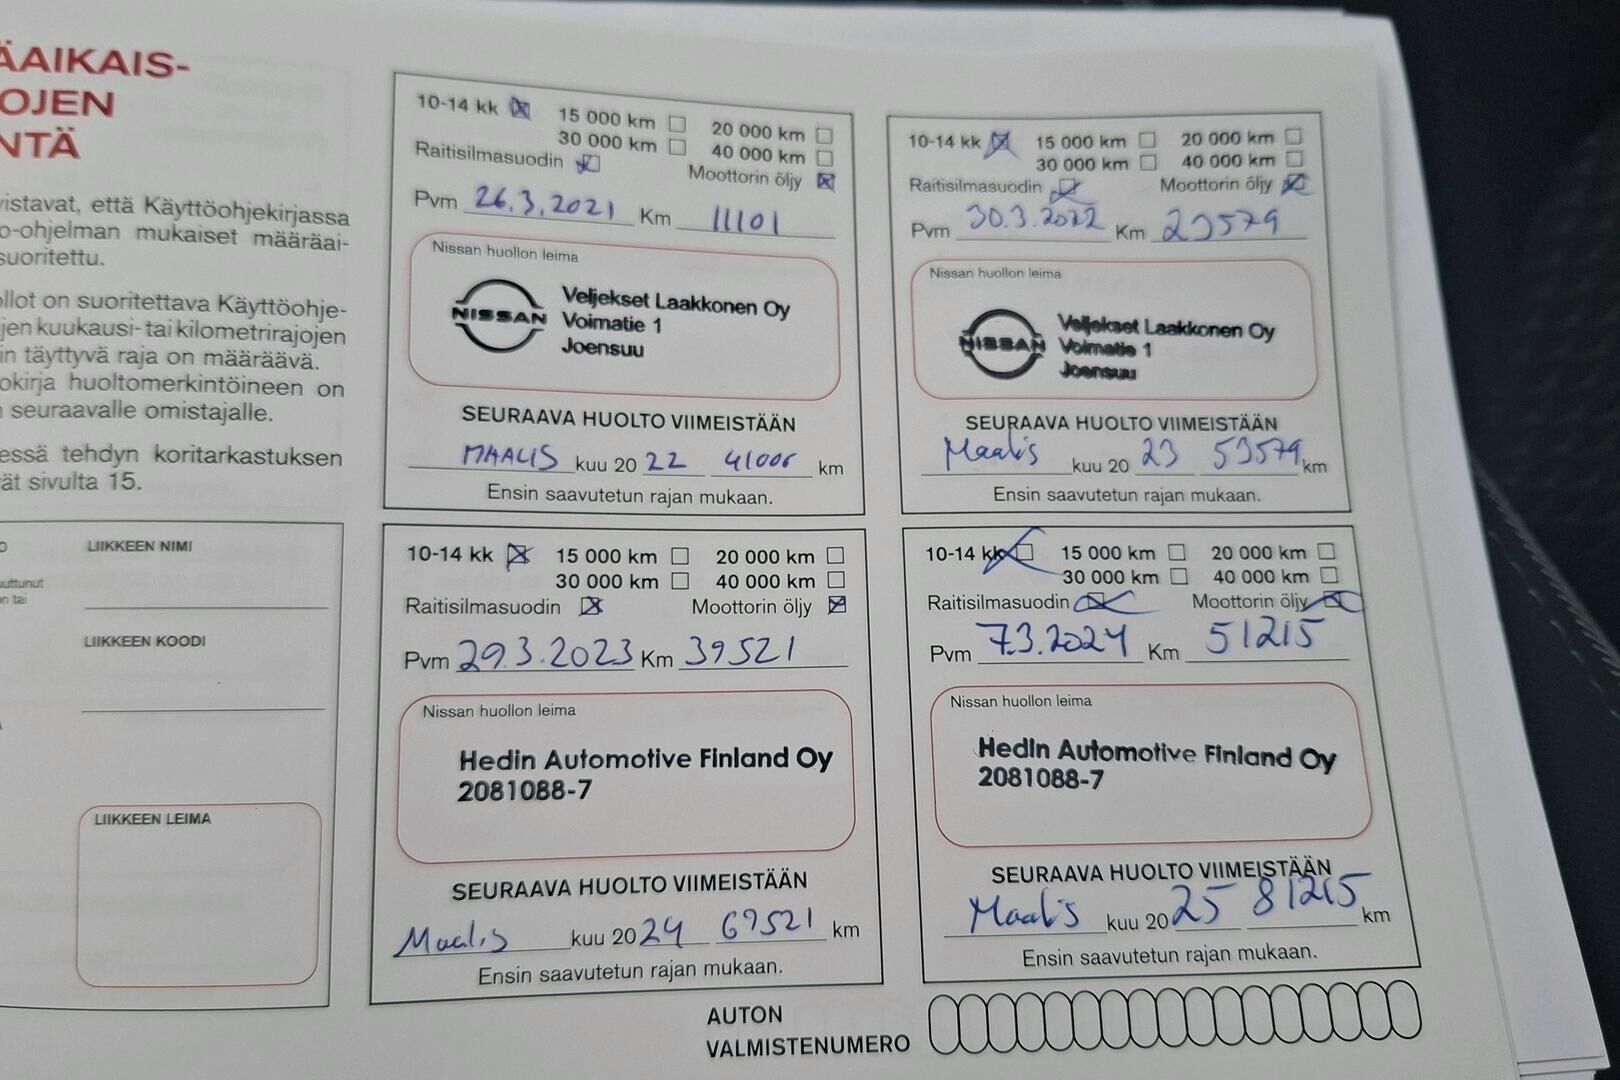 ÄAIKAIS-
OJEN
NTÄ
vistavat, että Käyttöohjekirjassa
o-ohjelman mukaiset määräai-
suoritettu.
llot on suoritettava Käyttöohje-
jen kuukausi- tai kilometrirajojen
in täyttyvä raja on määräävä.
okirja huoltomerkintöineen on
seuraavalle omistajalle.
essä tehdyn koritarkastuksen
ät sivulta 15.
LIIKKEEN NIMI
uttunut
n tai
LIIKKEEN KOODI
LIIKKEEN LEIMA
10-14 kk 15 000 km 20 000 km
30 000 km 40 000 km
Raitisilmasuodin Moottorin öljy
Pvm 26.3.2021 Km 11101
Nissan huollon leima
NISSAN
Veljekset Laakkonen Oy
Voimatie 1
Joensuu
SEURAAVA HUOLTO VIIMEISTÄÄN
MAALIS kuu 20 22 41006 km
Ensin saavutetun rajan mukaan.
10-14 kk 15 000 km 20 000 km
30 000 km 40 000 km
Raitisilmasuodin Moottorin öljy
Pvm 30.3.2022 Km 23579
Nissan huollon leima
NISSAN
Veljekset Laakkonen Oy
Voimatie 1
Joensuu
SEURAAVA HUOLTO VIIMEISTÄÄN
Maalis kuu 20 23 53579 km
Ensin saavutetun rajan mukaan.
10-14 kk 15 000 km 20 000 km
30 000 km 40 000 km
Raitisilmasuodin Moottorin öljy
Pvm 29.3.2023 Km 39521
Nissan huollon leima
Hedin Automotive Finland Oy
2081088-7
SEURAAVA HUOLTO VIIMEISTÄÄN
Maalis kuu 20 24 69521 km
Ensin saavutetun rajan mukaan.
10-14 kk 15 000 km 20 000 km
30 000 km 40 000 km
Raitisilmasuodin Moottorin öljy
Pvm 7.3.2024 Km 51215
Nissan huollon leima
Hedin Automotive Finland Oy
2081088-7
SEURAAVA HUOLTO VIIMEISTÄÄN
Maalis kuu 20 25 81215 km
Ensin saavutetun rajan mukaan.
AUTON
VALMISTENUMERO